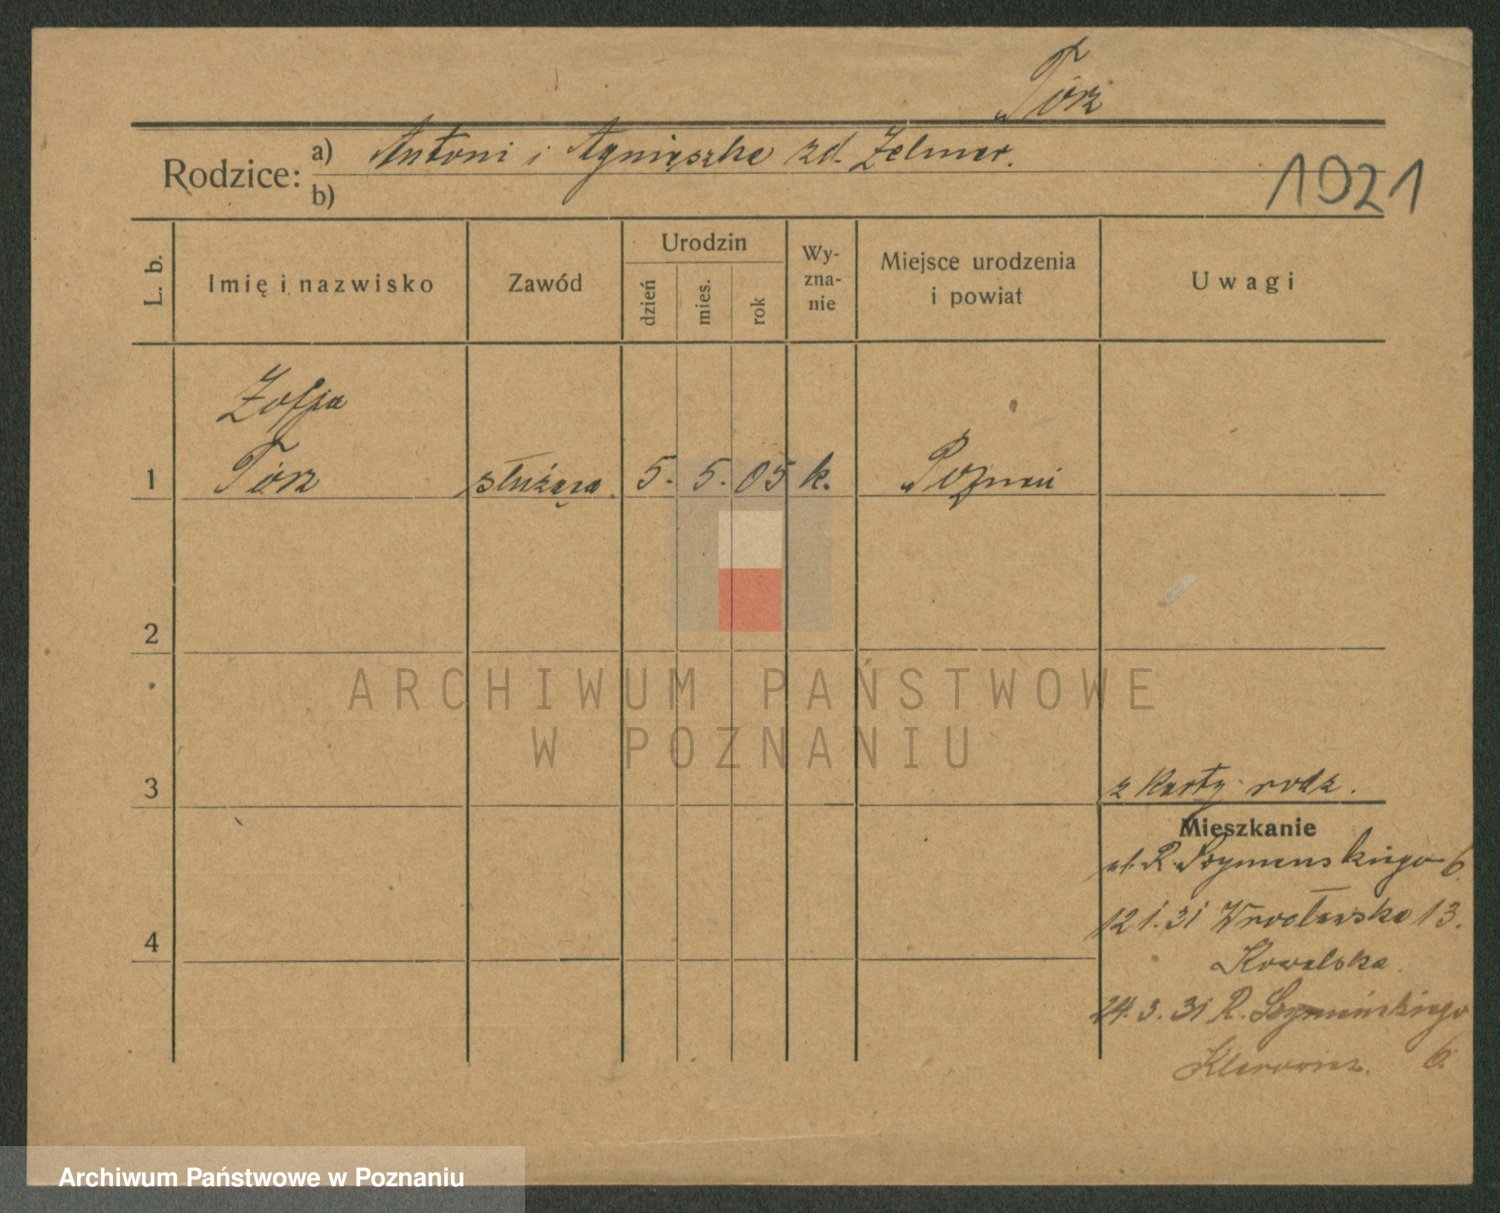 Tórz
Rodzice: a) Antoni i Agnieszka zd. Zelmer.
b)
1921
L. b.
Imię i nazwisko
Zawód
Urodzin
dzień
mies.
rok
Wy-
zna-
nie
Miejsce urodzenia
i powiat
Uwagi
Zofja
1 Tórz służąca. 5. 5. 05 k. Poznań
2
ARCHIWUM PAŃSTWOWE
W POZNANIU
3
z Karty rodz.
Mieszkanie
ul. R. Szymańskiego 6.
4
12 1. 31 Wrocławska 13.
Kowalska.
24. 3. 31 R. Szymańskiego
6.
Archiwum Państwowe w Poznaniu